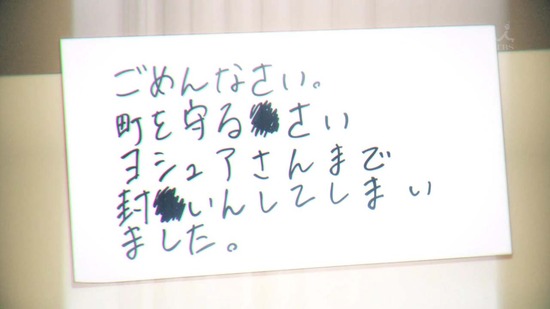 ごめんなさい。
町を守るさい
ヨシュアさんまで
封いんしてしまい
ました。
TBS